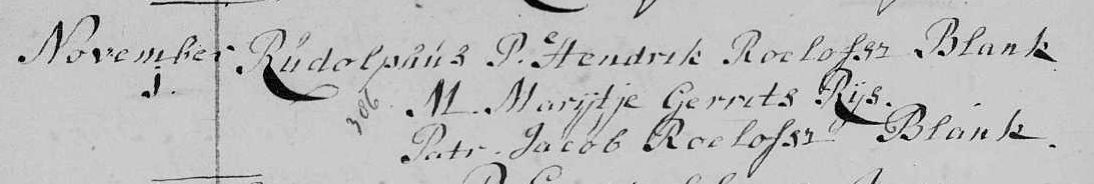 November Rudolphús P. Hendrik Roelofsz Blank
1. 386 M. Marijtje Gerrits Rijs.
Patr. Jacob Roelofsz Blank.